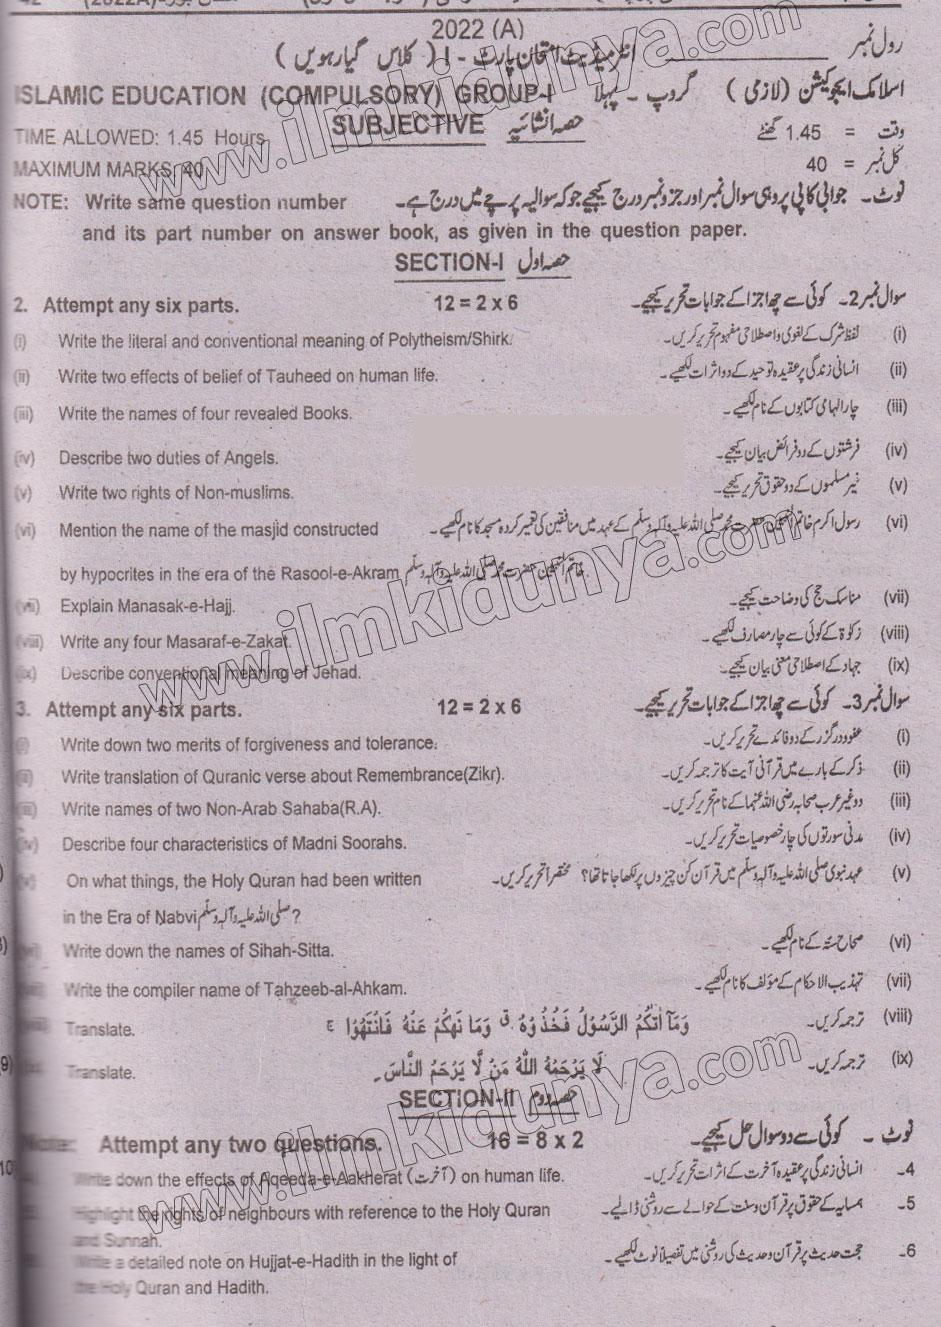 2022 (A)
رول نمبر ____________ انٹرمیڈیٹ امتحان پارٹ - I ( کلاس گیارہویں )
ISLAMIC EDUCATION (COMPULSORY) GROUP-I گروپ ۔ پہلا اسلامک ایجوکیشن (لازمی)
TIME ALLOWED: 1.45 Hours SUBJECTIVE حصہ انشائیہ وقت = 1.45 گھنٹے
MAXIMUM MARKS: 40 کل نمبر = 40
NOTE: Write same question number نوٹ۔ جوابی کاپی پر وہی سوال نمبر اور جزو نمبر درج کیجیے جو کہ سوالیہ پرچے میں درج ہے۔
and its part number on answer book, as given in the question paper.
SECTION-I حصہ اول
2. Attempt any six parts. 12 = 2 x 6 سوال نمبر 2۔ کوئی سے چھ اجزا کے جوابات تحریر کیجیے۔
(i) Write the literal and conventional meaning of Polytheism/Shirk. لفظ شرک کے لغوی و اصطلاحی مفہوم تحریر کریں۔ (i)
(ii) Write two effects of belief of Tauheed on human life. انسانی زندگی پر عقیدہ توحید کے دو اثرات لکھیے۔ (ii)
(iii) Write the names of four revealed Books. چار الہامی کتابوں کے نام لکھیے۔ (iii)
(iv) Describe two duties of Angels. فرشتوں کے دو فرائض بیان کیجیے۔ (iv)
(v) Write two rights of Non-muslims. غیر مسلموں کے دو حقوق تحریر کیجیے۔ (v)
(vi) Mention the name of the masjid constructed رسول اکرم خاتم النبیین حضرت محمد صلی اللہ علیہ وآلہ وسلم کے عہد میں منافقین کی تعمیر کردہ مسجد کا نام لکھیے۔ (vi)
by hypocrites in the era of the Rasool-e-Akram خاتم النبیین حضرت محمد صلی اللہ علیہ وآلہ وسلم.
(vii) Explain Manasak-e-Hajj. مناسک حج کی وضاحت کیجیے۔ (vii)
(viii) Write any four Masaraf-e-Zakat. زکوٰۃ کے کوئی سے چار مصارف لکھیے۔ (viii)
(ix) Describe conventional meaning of Jehad. جہاد کے اصطلاحی معنی بیان کیجیے۔ (ix)
3. Attempt any six parts. 12 = 2 x 6 سوال نمبر 3۔ کوئی سے چھ اجزا کے جوابات تحریر کیجیے۔
(i) Write down two merits of forgiveness and tolerance. عفو و درگزر کے دو فائدے تحریر کریں۔ (i)
(ii) Write translation of Quranic verse about Remembrance(Zikr). ذکر کے بارے میں قرآنی آیت کا ترجمہ کریں۔ (ii)
(iii) Write names of two Non-Arab Sahaba(R.A). دو غیر عرب صحابہ رضی اللہ عنہما کے نام تحریر کریں۔ (iii)
(iv) Describe four characteristics of Madni Soorahs. مدنی سورتوں کی چار خصوصیات تحریر کریں۔ (iv)
(v) On what things, the Holy Quran had been written عہد نبوی صلی اللہ علیہ وآلہ وسلم میں قرآن کن چیزوں پر لکھا جاتا تھا؟ مختصراً تحریر کریں۔ (v)
in the Era of Nabvi صلی اللہ علیہ وآلہ وسلم?
(vi) Write down the names of Sihah-Sitta. صحاح ستہ کے نام لکھیے۔ (vi)
(vii) Write the compiler name of Tahzeeb-al-Ahkam. تہذیب الاحکام کے مؤلف کا نام لکھیے۔ (vii)
(viii) Translate. وَمَآ اٰتٰكُمُ الرَّسُوْلُ فَخُذُوْهُ ۚ وَمَا نَهٰكُمْ عَنْهُ فَانْتَهُوْا ۚ ترجمہ کریں۔ (viii)
Translate. لَا يَرْحَمُهُ اللّٰهُ مَنْ لَّا يَرْحَمُ النَّاسَ۔ ترجمہ کریں۔ (ix)
SECTION-II حصہ دوم
Note: Attempt any two questions. 16 = 8 x 2 نوٹ ۔ کوئی سے دو سوال حل کیجیے۔
Write down the effects of Aqeeda-e-Aakherat (آخرت) on human life. انسانی زندگی پر عقیدہ آخرت کے اثرات تحریر کریں۔ 4۔
Highlight the rights of neighbours with reference to the Holy Quran ہمسایہ کے حقوق پر قرآن و سنت کے حوالے سے روشنی ڈالیے۔ 5۔
and Sunnah.
Write a detailed note on Hujjat-e-Hadith in the light of حجت حدیث پر قرآن و حدیث کی روشنی میں تفصیلاً نوٹ لکھیے۔ 6۔
the Holy Quran and Hadith.
www.ilmkidunya.com
www.ilmkidunya.com
www.ilmkidunya.com